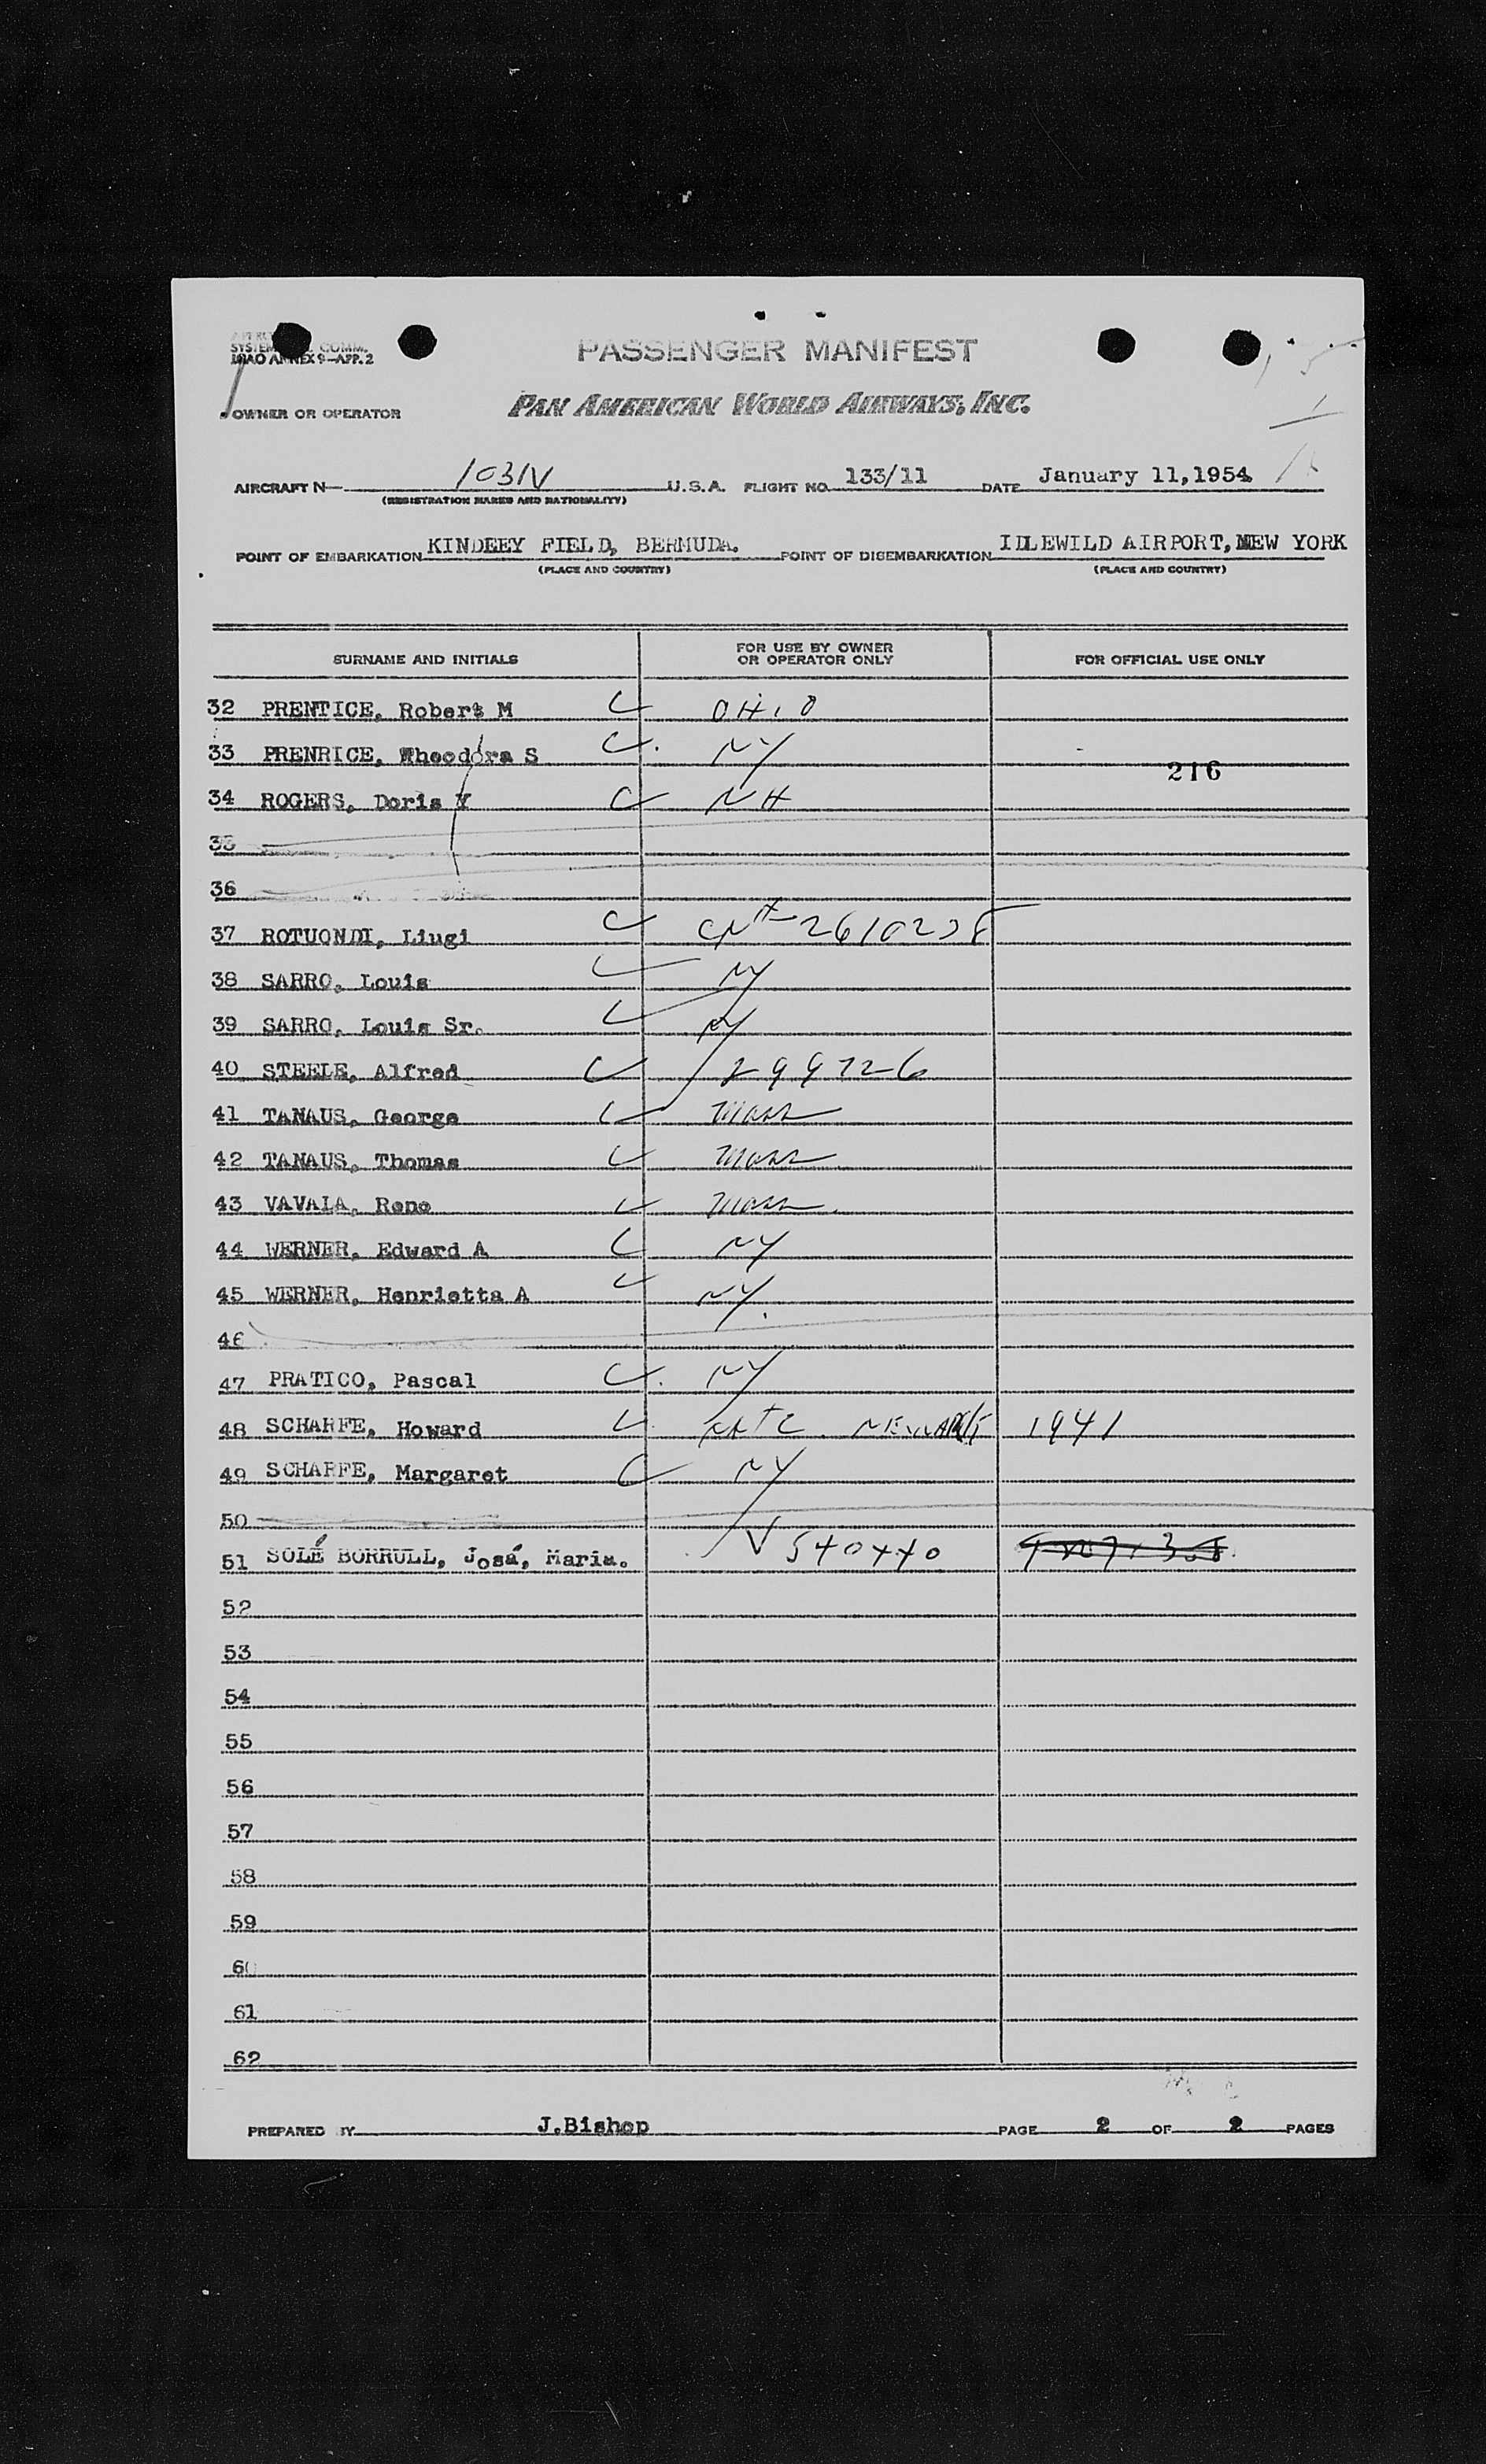 SYSTEM COMM.
ICAO ANNEX 9—APP. 2
PASSENGER MANIFEST
OWNER OR OPERATOR PAN AMERICAN WORLD AIRWAYS, INC.
AIRCRAFT N— 1031V U.S.A. FLIGHT NO. 133/11 DATE January 11, 1954
(REGISTRATION MARKS AND NATIONALITY)
POINT OF EMBARKATION KINDLEY FIELD, BERMUDA. POINT OF DISEMBARKATION IDLEWILD AIRPORT, NEW YORK
(PLACE AND COUNTRY) (PLACE AND COUNTRY)
SURNAME AND INITIALS FOR USE BY OWNER OR OPERATOR ONLY FOR OFFICIAL USE ONLY
32 PRENTICE, Robert M OHIO
33 PRENRICE, Theodora S NY
216
34 ROGERS, Doris Y NH
35
36
37 ROTUONDI, Liugi
38 SARRO, Louis NY
39 SARRO, Louis Sr. NY
40 STEELE, Alfred 299726
41 TANAUS, George Mass
42 TANAUS, Thomas Mass
43 VAVALA, Reno Mass
44 WERNER, Edward A NY
45 WERNER, Henrietta A NY.
46
47 PRATICO, Pascal NY
48 SCHARFE, Howard NEWARK 1941
49 SCHARFE, Margaret NY
50
51 SOLÉ BORRULL, José, Maria. V
52
53
54
55
56
57
58
59
60
61
62
PREPARED BY J.Bishop PAGE 2 OF 2 PAGES